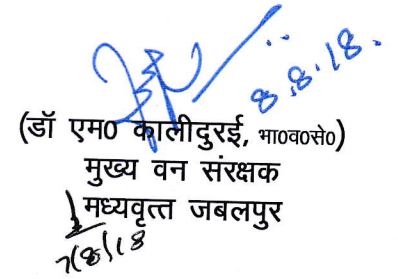 8.8.18.
(डॉ एम0 कालीदुरई, भा0व0से0)
मुख्य वन संरक्षक
मध्यवृत्त जबलपुर
7/8/18